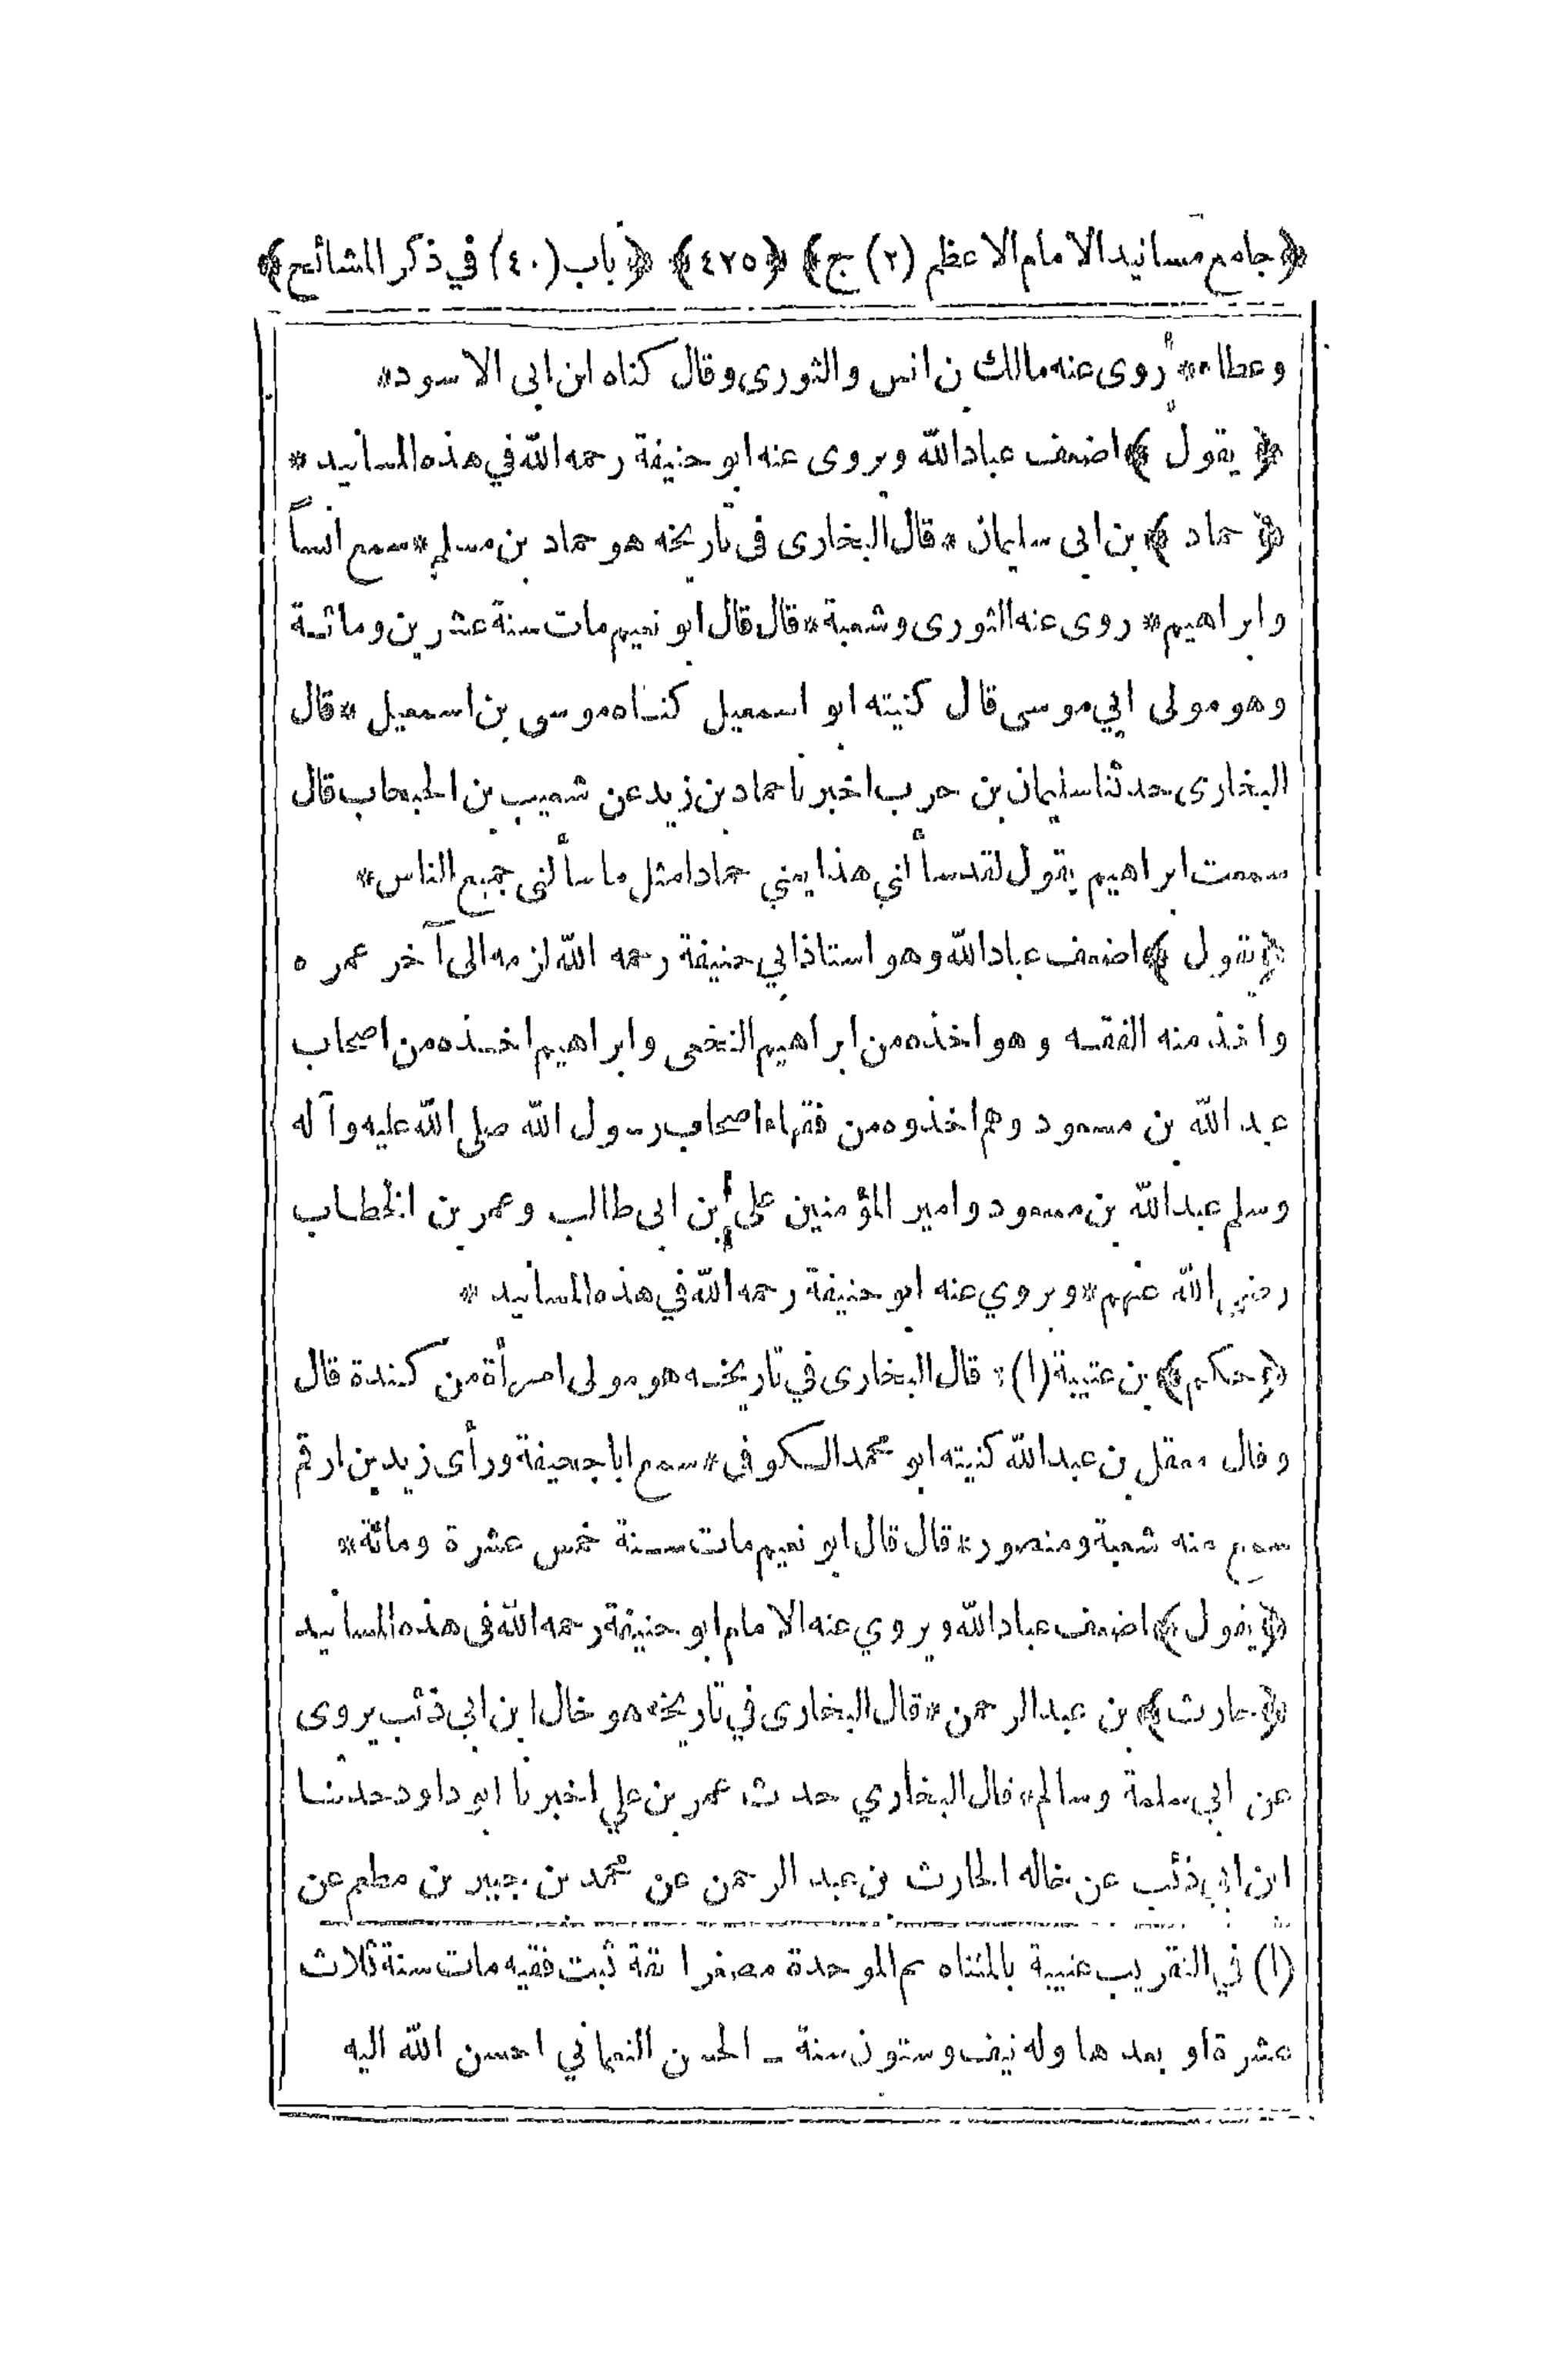 ﴿جامع مسانيد الامام الاعظم (٢) ج﴾ ﴿٤٢٥﴾ ﴿باب (٤٠) في ذكر المشائخ﴾
وعطاء * روى عنه مالك بن انس والثورى وقال كناه ابن ابى الاسود *
﴿يقول﴾ اضعف عباد الله ويروى عنه ابو حنيفة رحمه الله في هذه المسانيد *
﴿حماد﴾ بن ابى سليمان * قال البخارى فى تاريخه هو حماد بن مسلم * سمع انساً
وابراهيم * روى عنه الثورى وشعبة * قال قال ابو نعيم مات سنة عشرين ومائة
وهو مولى ابي موسى قال كنيته ابو اسمعيل كناه موسى بن اسمعيل * قال
البخارى حدثنا سليمان بن حرب اخبرنا حماد بن زيد عن شعيب بن الحبحاب قال
سمعت ابراهيم يقول لقد سألني هذا يعني حمادا مثل ما سألنى جميع الناس *
﴿يقول﴾ اضعف عباد الله وهو استاذ ابي حنيفة رحمه الله لزمه الى آخر عمره
واخذ منه الفقه وهو اخذه من ابراهيم النخعى وابراهيم اخذه من اصحاب
عبد الله بن مسعود وهم اخذوه من فقهاء اصحاب رسول الله صلى الله عليه وآله
وسلم عبد الله بن مسعود وامير المؤمنين على بن ابى طالب وعمر بن الخطاب
رضي الله عنهم * ويروي عنه ابو حنيفة رحمه الله في هذه المسانيد *
﴿حكم﴾ بن عتيبة (١) * قال البخارى في تاريخه هو مولى امرأة من كندة قال
وقال معقل بن عبد الله كنيته ابو محمد الكوفى * سمع ابا جحيفة ورأى زيد بن ارقم
سمع منه شعبة ومنصور * قال قال ابو نعيم مات سنة خمس عشرة ومائة *
﴿يقول﴾ اضعف عباد الله ويروي عنه الامام ابو حنيفة رحمه الله فى هذه المسانيد
﴿حارث﴾ بن عبد الرحمن * قال البخارى في تاريخه هو خال ابن ابى ذئب يروى
عن ابي سلمة وسالم * قال البخاري حدث عمر بن علي اخبرنا ابو داود حدثنا
ابن ابي ذئب عن خاله الحارث بن عبد الرحمن عن محمد بن جبير بن مطعم عن
(١) في التقريب عتيبة بالمثناه ثم الموحدة مصغرا ثقة ثبت فقيه مات سنة ثلاث
عشرة او بعدها وله نيف وستون سنة ـ الحسن النعماني احسن الله اليه